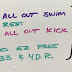 ALL OUT SWIM
REST
ALL OUT KICK
O EZ FREE
33 & Y.D.R.